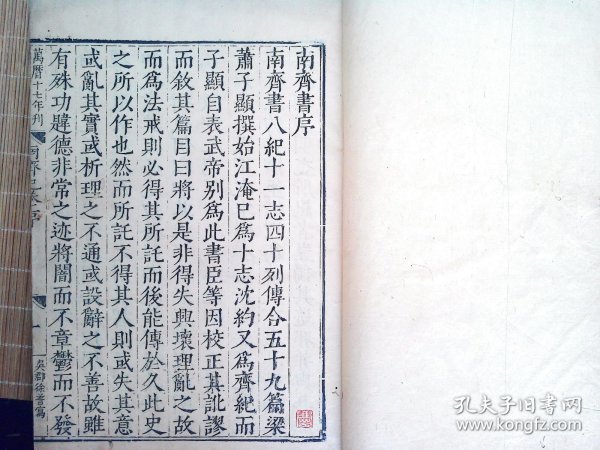 南齊書序
南齊書八紀十一志四十列傳合五十九篇梁
蕭子顯撰始江淹已爲十志沈約又爲齊紀而
子顯自表武帝别爲此書臣等因校正其訛謬
而敘其篇目曰將以是非得失興壞理亂之故
而爲法戒則必得其所託而後能傳於久此史
之所以作也然而所託不得其人則或失其意
或亂其實或析理之不通或設辭之不善故雖
有殊功韙德非常之迹將闇而不章鬱而不發
萬曆十七年刊
序
一
吳郡徐普寫
孔夫子旧书网